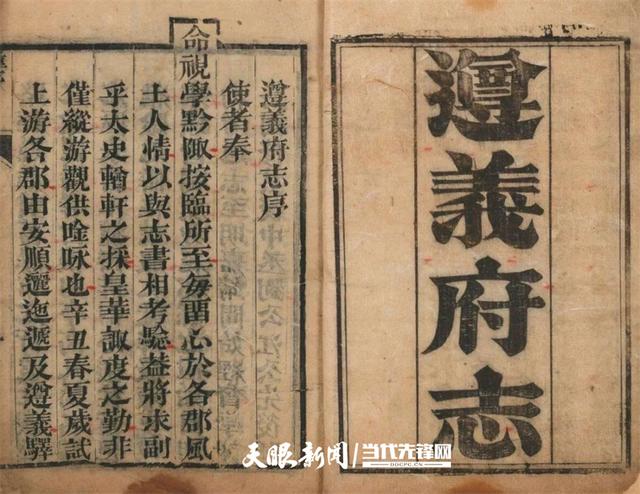 遵義府志
遵義府志序
使者奉
命視學黔陬按臨所至每畱心於各郡風
土人情以與志書相考驗益將求副
乎太史輶軒之採皇華諏度之勤非
僅縱游觀供唫咏也辛丑春夏歲試
上游各郡由安順邐迤遞及遵義驛
天眼新闻/当代先锋网
DDCPC.CN